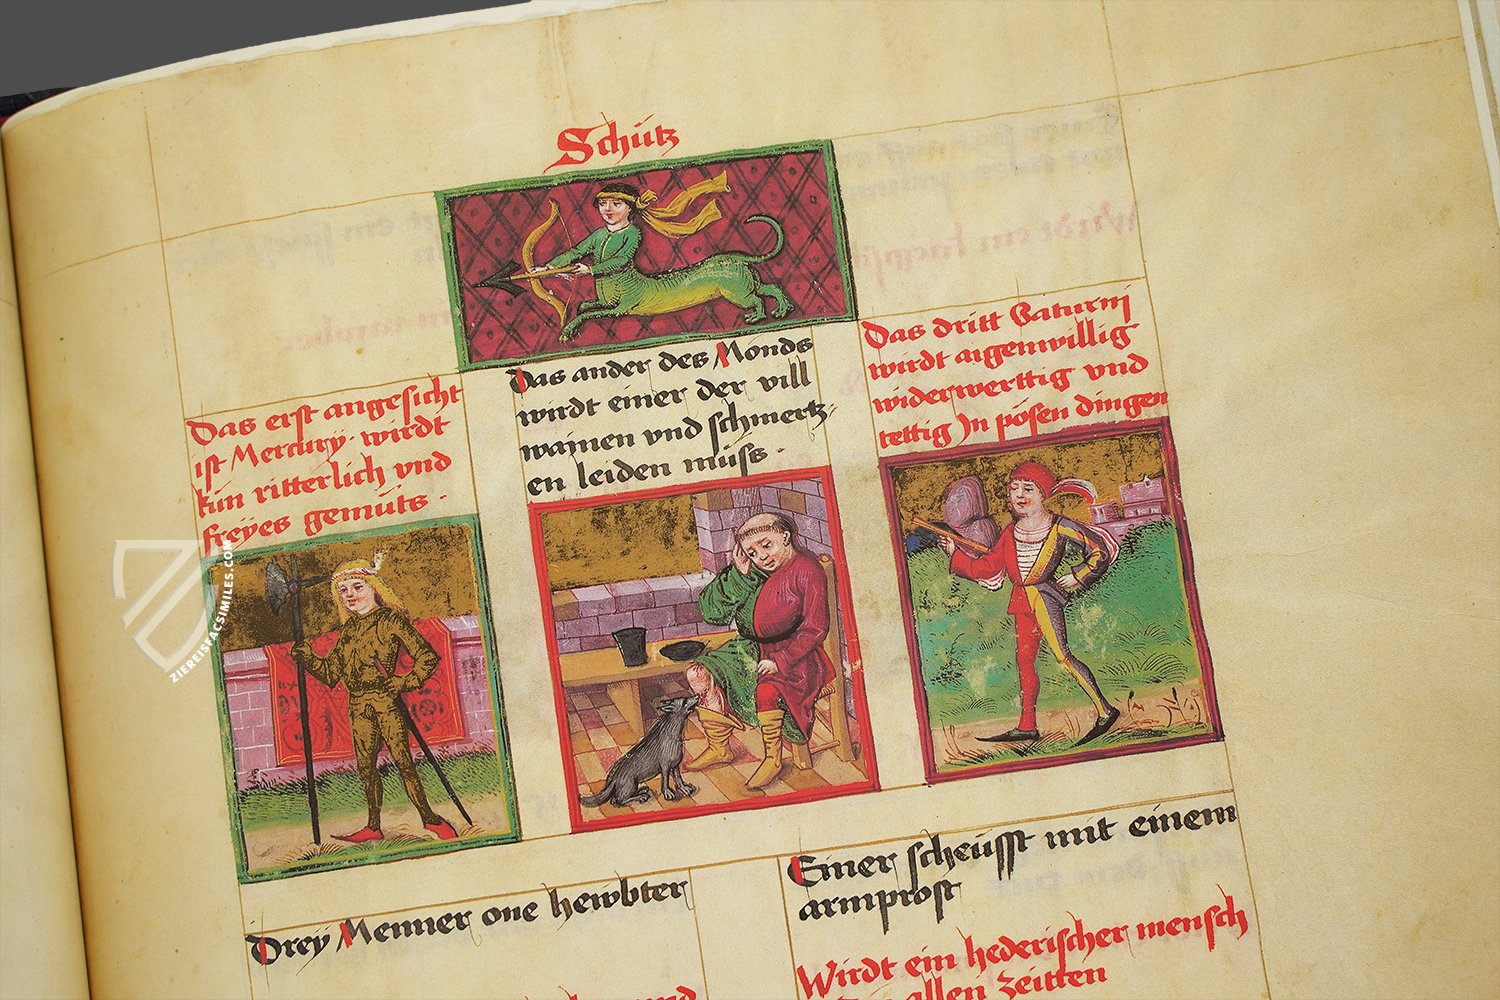 Schütz
Das erst angesicht
ist Mercurÿ · wirdt
kün ritterlich vnd
freÿes gemüts ·
Das ander des Monds
wirdt einer der vill
wainen vnd schmertz-
en leiden müss ·
Das dritt Saturnj
wirdt aigenwillig
widerwerttig vnd
tettig Jn pösen dingen
ZIEREISFACSIMILES.COM
Dreÿ Menner one hewbter
vnd
Einer scheüsst mit einem
armprost
Wirdt ein hederischer mensch
allen Zeitten